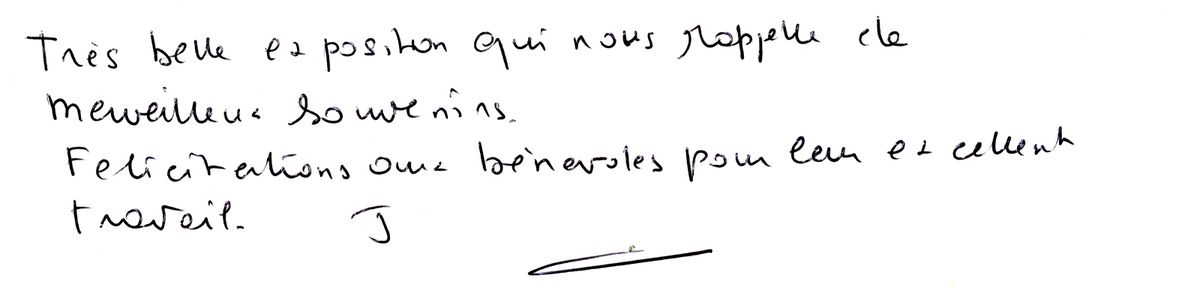 Très belle exposition qui nous rappelle de
merveilleux souvenirs.
Felicitations aux bénevoles pour leur excellent
travail. J